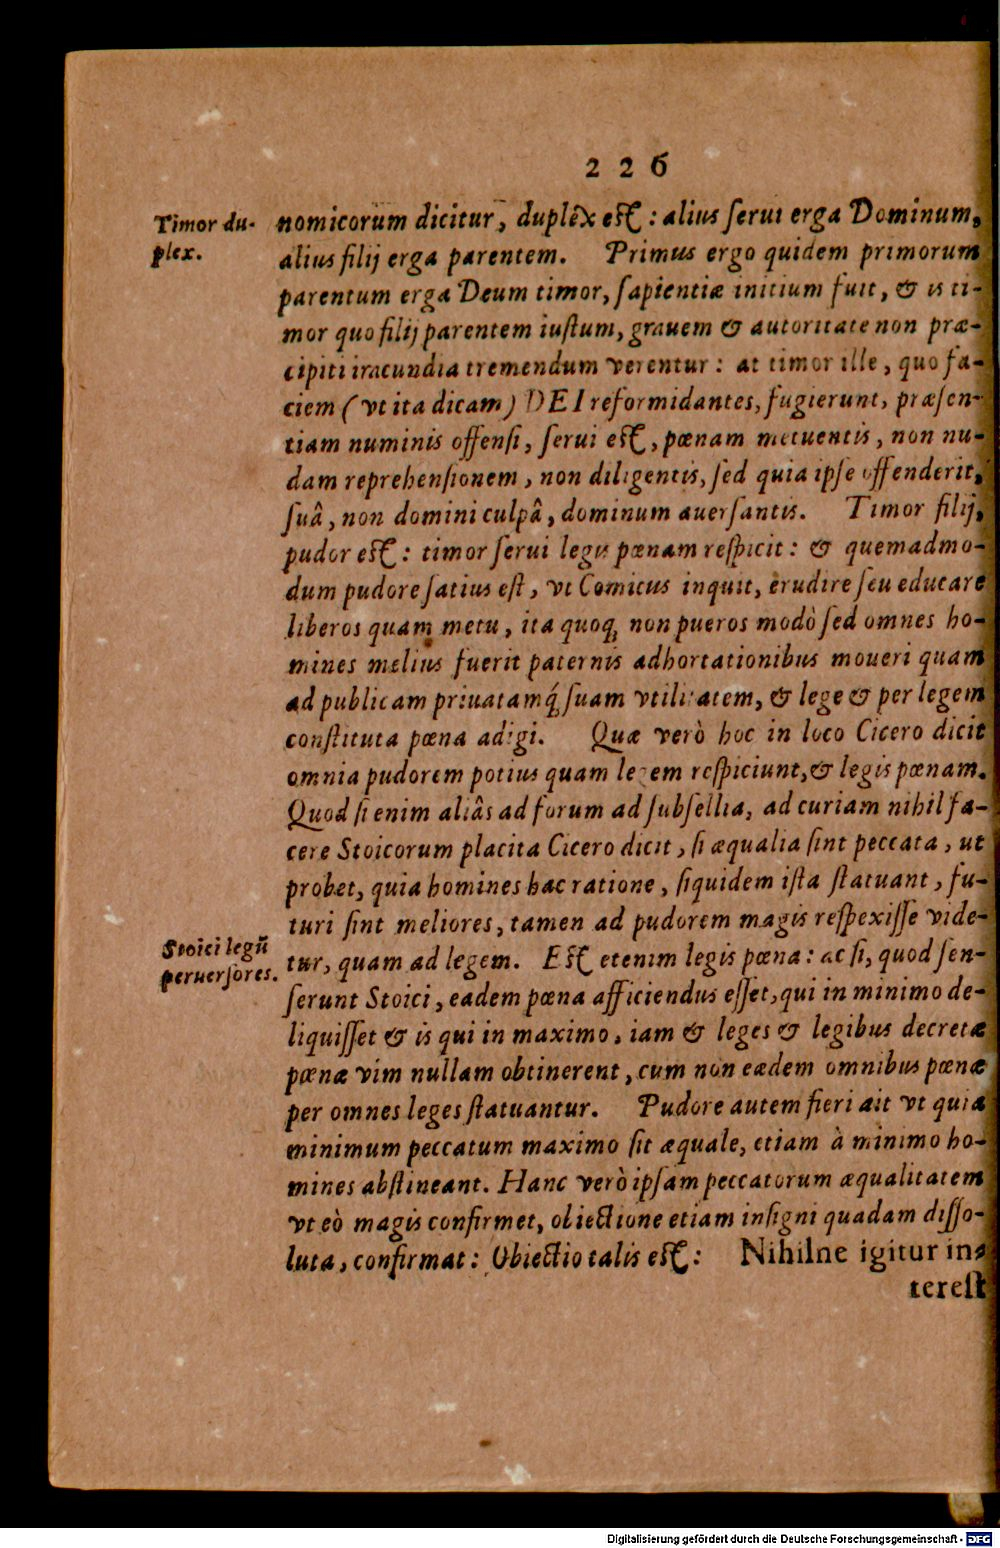 226
Timor du-
plex.
nomicorum dicitur, duplex est: alius serui erga Dominum,
alius filij erga parentem. Primus ergo quidem primorum
parentum erga Deum timor, sapientiæ initium fuit, & is ti-
mor quo filij parentem iustum, grauem & autoritate non præ-
cipiti iracundia tremendum verentur: at timor ille, quo fa-
ciem (vt ita dicam) DEI reformidantes, fugierunt, præsen-
tiam numinis offensi, serui est, pœnam metuentis, non nu-
dam reprehensionem, non diligentis, sed quia ipse offenderit,
suâ, non domini culpâ, dominum auersantis. Timor filij,
pudor est: timor serui legis pœnam respicit: & quemadmo-
dum pudore satius est, vt Comicus inquit, erudire seu educare
liberos quam metu, ita quoq; non pueros modò sed omnes ho-
mines melius fuerit paternis adhortationibus moueri quam
ad publicam priuatamq́; suam vtilitatem, & lege & per legem
constituta pœna adigi. Quæ verò hoc in loco Cicero dicit
omnia pudorem potius quam legem respiciunt, & legis pœnam.
Quod si enim aliâs ad forum ad subsellia, ad curiam nihil fa-
cere Stoicorum placita Cicero dicit, si æqualia sint peccata, ut
probet, quia homines hac ratione, siquidem ista statuant, fu-
turi sint meliores, tamen ad pudorem magis respexisse vide-
Stoici legũ
peruersores.
tur, quam ad legem. Est etenim legis pœna: ac si, quod sen-
serunt Stoici, eadem pœna afficiendus esset, qui in minimo de-
liquisset & is qui in maximo, iam & leges & legibus decretæ
pœnæ vim nullam obtinerent, cum non eædem omnibus pœnæ
per omnes leges statuantur. Pudore autem fieri ait vt quia
minimum peccatum maximo sit æquale, etiam à minimo ho-
mines abstineant. Hanc verò ipsam peccatorum æqualitatem
vt eò magis confirmet, obiectione etiam insigni quadam disso-
luta, confirmat: Obiectio talis est: Nihilne igitur in-
terest
Digitalisierung gefördert durch die Deutsche Forschungsgemeinschaft - DFG